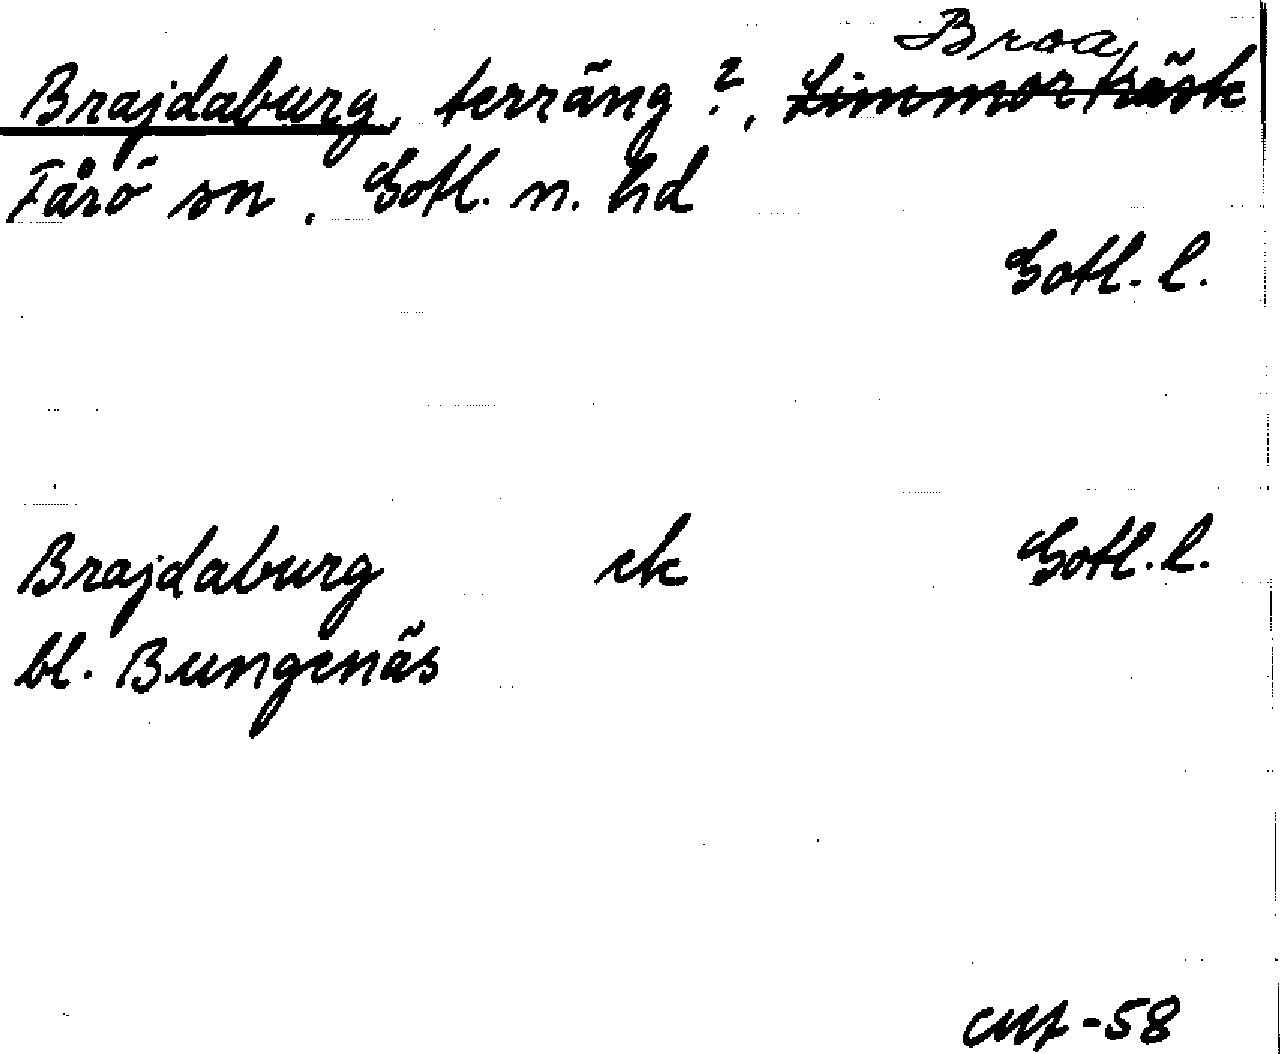 Broa
Brajdaburg, terräng?, Limmorträsk
Fårö sn. Gotl. n. hd
Gotl. l.
Brajdaburg ek Gotl. l.
bl. Bungenäs
-58